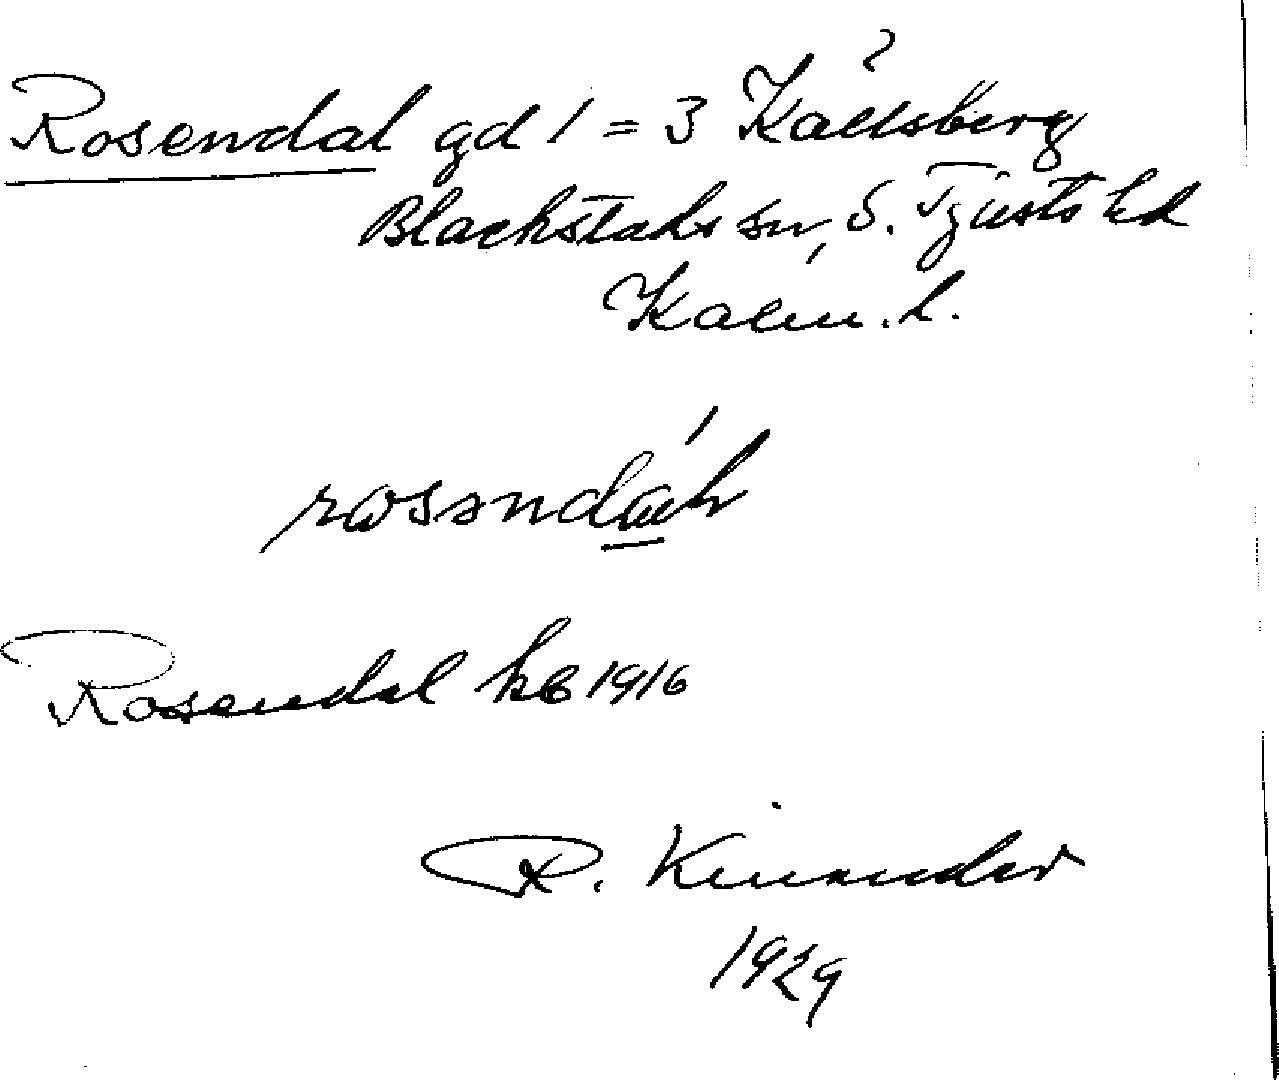 Rosendal gd 1 = 3 Källsberg
Blackstads sn, S. Tjusts hd
Kalm. l.
Rosendal kb 1916
R. Kinander
1929